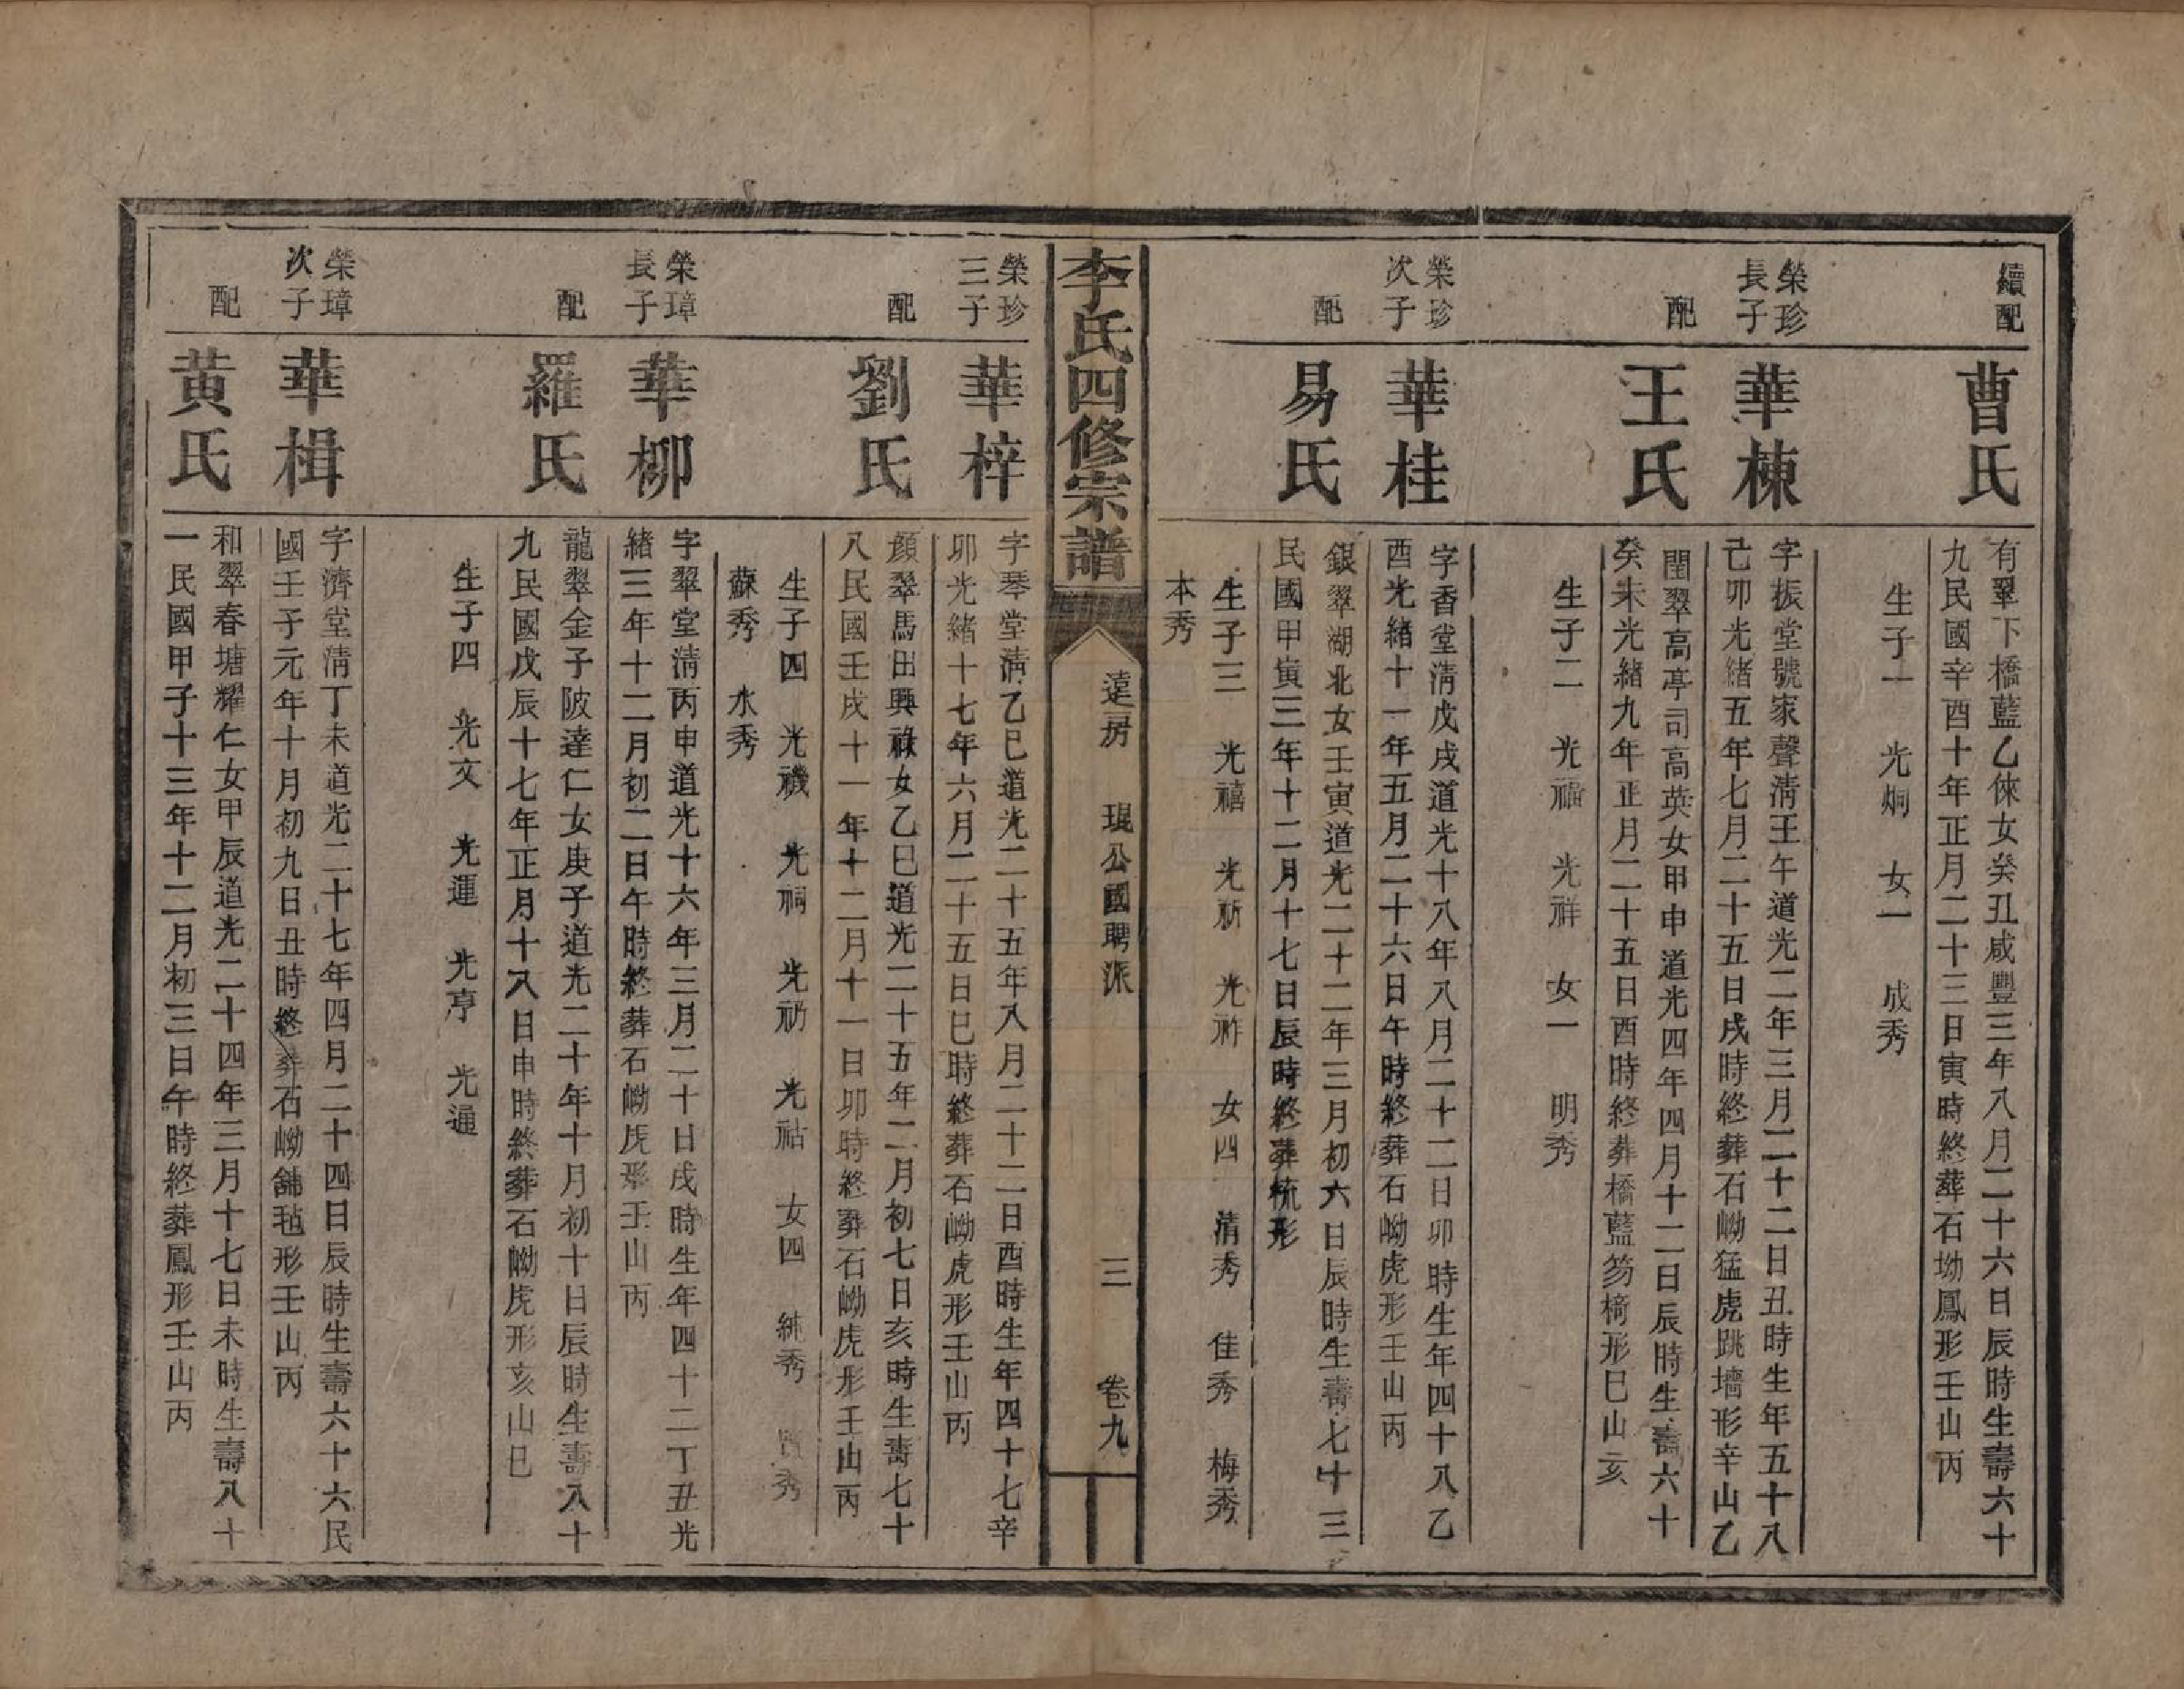 續配
曹氏
有翠下橋藍乙倈女癸丑咸豐三年八月二十六日辰時生壽六十
九民國辛酉十年正月二十三日寅時終葬石坳鳳形壬山丙
生子一 光炯 女一 成秀
榮珍
長子
華棟
字振堂號家聲清壬午道光二年三月二十二日丑時生年五十八
己卯光緒五年七月二十五日戌時終葬石坳猛虎跳墻形辛山乙
配
王氏
閨翠高亭司高英女甲申道光四年四月十一日辰時生壽六十
癸未光緒九年正月二十五日酉時終葬橋藍笏椅形巳山亥
生子二 光禧 光祥 女一 明秀
榮珍
次子
華桂
字香堂清戊戌道光十八年八月二十二日卯時生年四十八乙
酉光緒十一年五月二十六日午時終葬石坳虎形壬山丙
配
易氏
銀翠湖北女壬寅道光二十二年三月初六日辰時生壽七十三
民國甲寅三年十二月十七日辰時終葬梳形
生子三 光禧 光祈 光祚 女四 清秀 佳秀 梅秀
本秀
李氏四修宗譜
遠房 琨公國聘派 三 卷九
榮珍
三子
華梓
字琴堂清乙巳道光二十五年八月二十二日酉時生年四十七辛
卯光緒十七年六月二十五日巳時終葬石坳虎形壬山丙
配
劉氏
顏翠馬田興祿女乙巳道光二十五年二月初七日亥時生壽七十
八民國壬戌十一年十二月十一日卯時終葬石坳虎形壬山丙
生子四 光禨 光祠 光礽 光祜 女四 純秀 賢秀
蘇秀 水秀
榮璋
長子
華柳
字翠堂清丙申道光十六年三月二十日戌時生年四十二丁丑光
緒三年十二月初二日午時終葬石坳虎形壬山丙
配
羅氏
龍翠金子陂達仁女庚子道光二十年十月初十日辰時生壽八十
九民國戊辰十七年正月十八日申時終葬石坳虎形亥山巳
生子四 光文 光運 光亨 光通
榮璋
次子
華楫
字濟堂清丁未道光二十七年四月二十四日辰時生壽六十六民
國壬子元年十月初九日丑時終葬石坳舖毡形壬山丙
配
黃氏
和翠春塘耀仁女甲辰道光二十四年三月十七日未時生壽八十
一民國甲子十三年十二月初三日午時終葬鳳形壬山丙